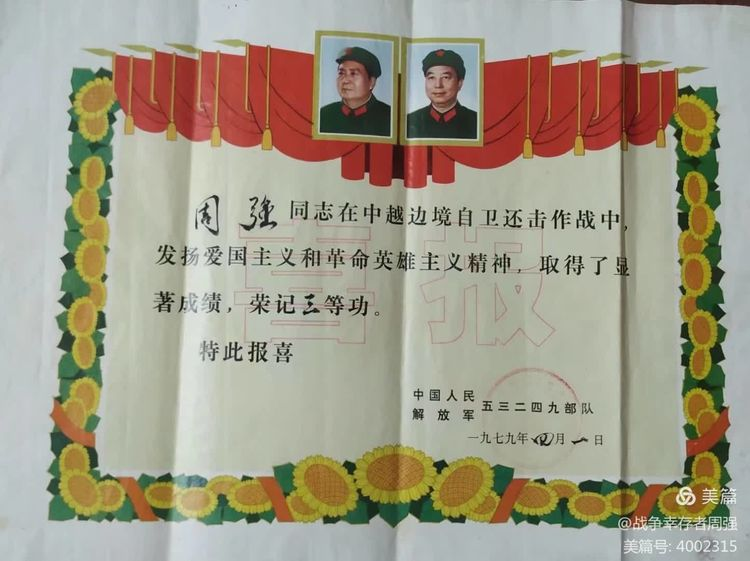 喜报
周强同志在中越边境自卫还击作战中,
发扬爱国主义和革命英雄主义精神,取得了显
著成绩,荣记三等功。
特此报喜
中国人民
解放军 五三二四九部队
一九七九年四月一日
美篇
@战争幸存者周强
美篇号: 4002315